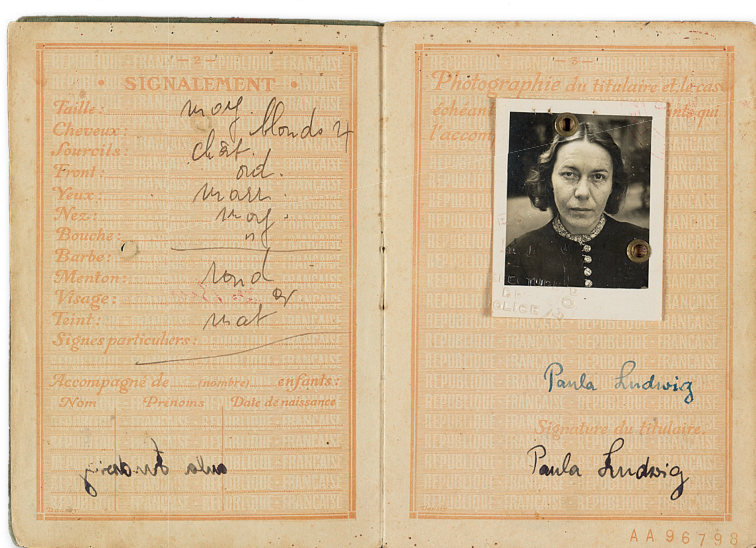 — 2 —
• SIGNALEMENT •
Taille: moy.
Cheveux: blonds
Sourcils: chât.
Front: ord.
Yeux: marr
Nez: moy.
Bouche:
Barbe:
Menton: rond
Visage:
Teint: mat
Signes particuliers:
Accompagné de (nombre) enfants:
Nom Prénoms Date de naissance
— 3 —
Photographie du titulaire et le cas
qui
Paula Ludwig
Signature du titulaire.
Paula Ludwig
AA96798